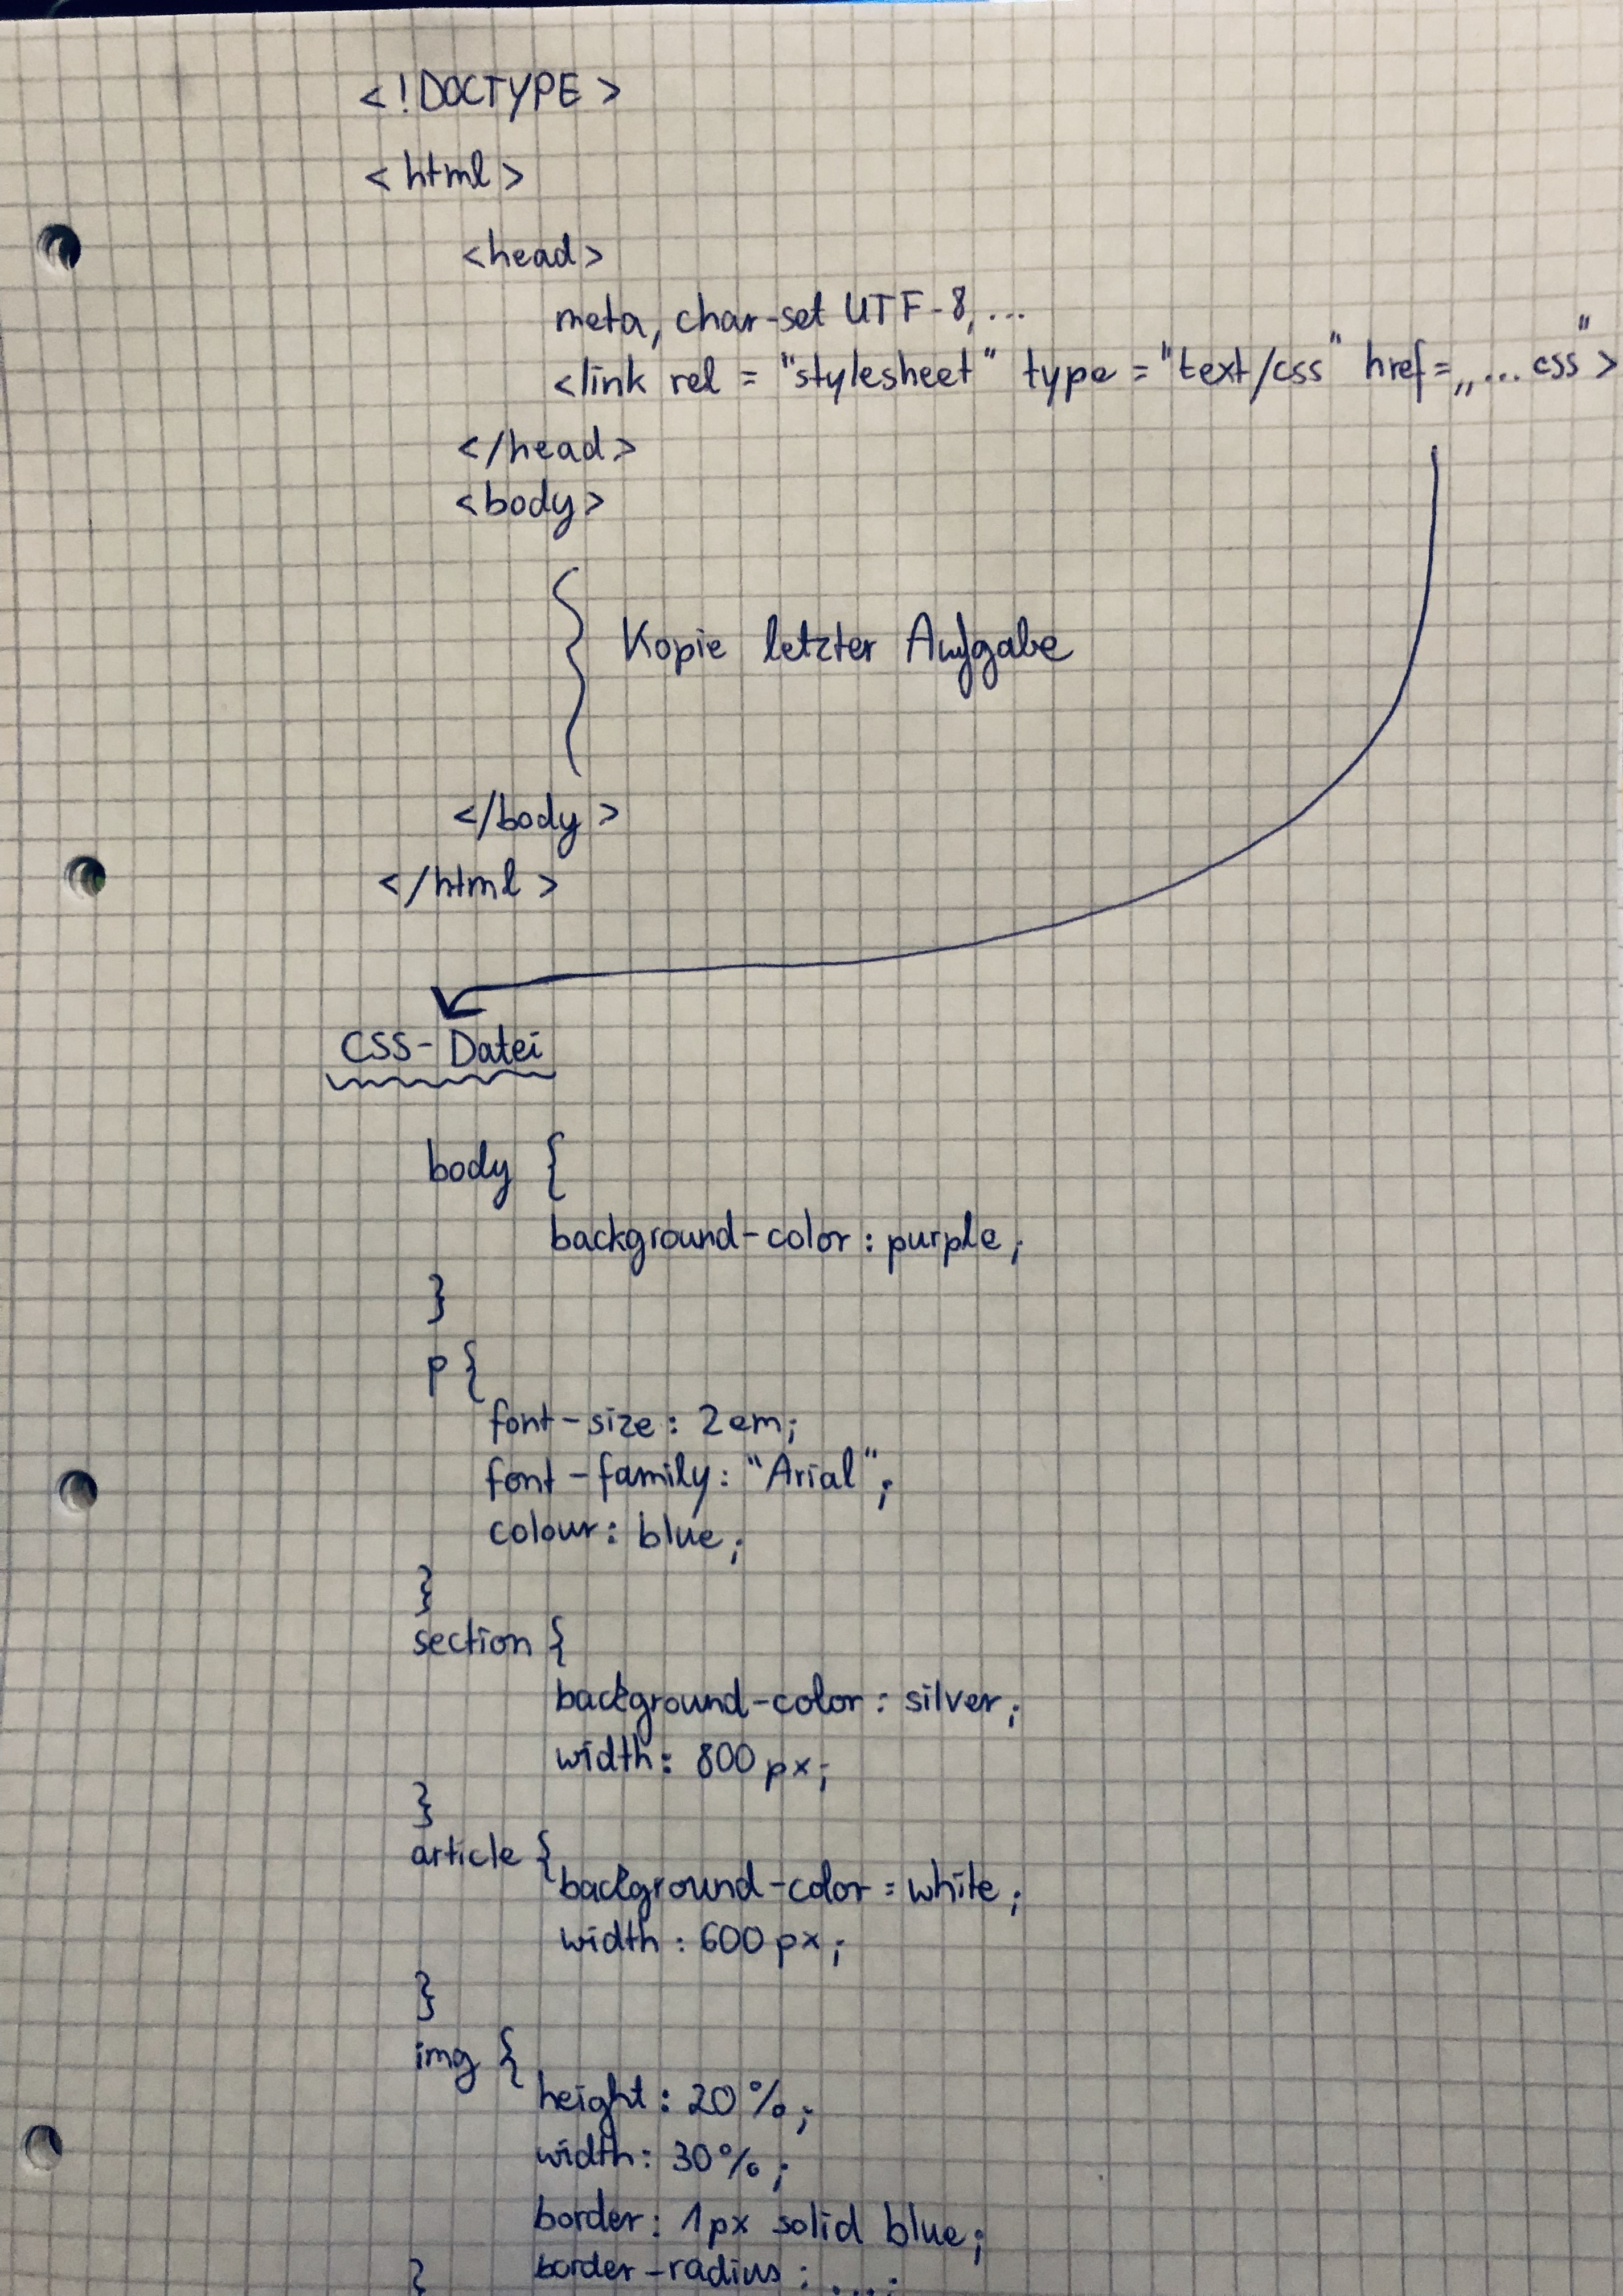 <!DOCTYPE>
<html>
<head>
meta, char-set UTF-8, ...
<link rel = "stylesheet" type = "text/css" href=„... css">
</head>
<body>
{ Kopie letzter Aufgabe
</body>
</html>
CSS-Datei
body {
background-color: purple;
}
p {
font-size: 2em;
font-family: "Arial";
colour: blue;
}
section {
background-color: silver;
width: 800px;
}
article {
background-color = white;
width: 600px;
}
img {
height: 20%;
width: 30%;
border: 1px solid blue;
border-radius: ...;
}